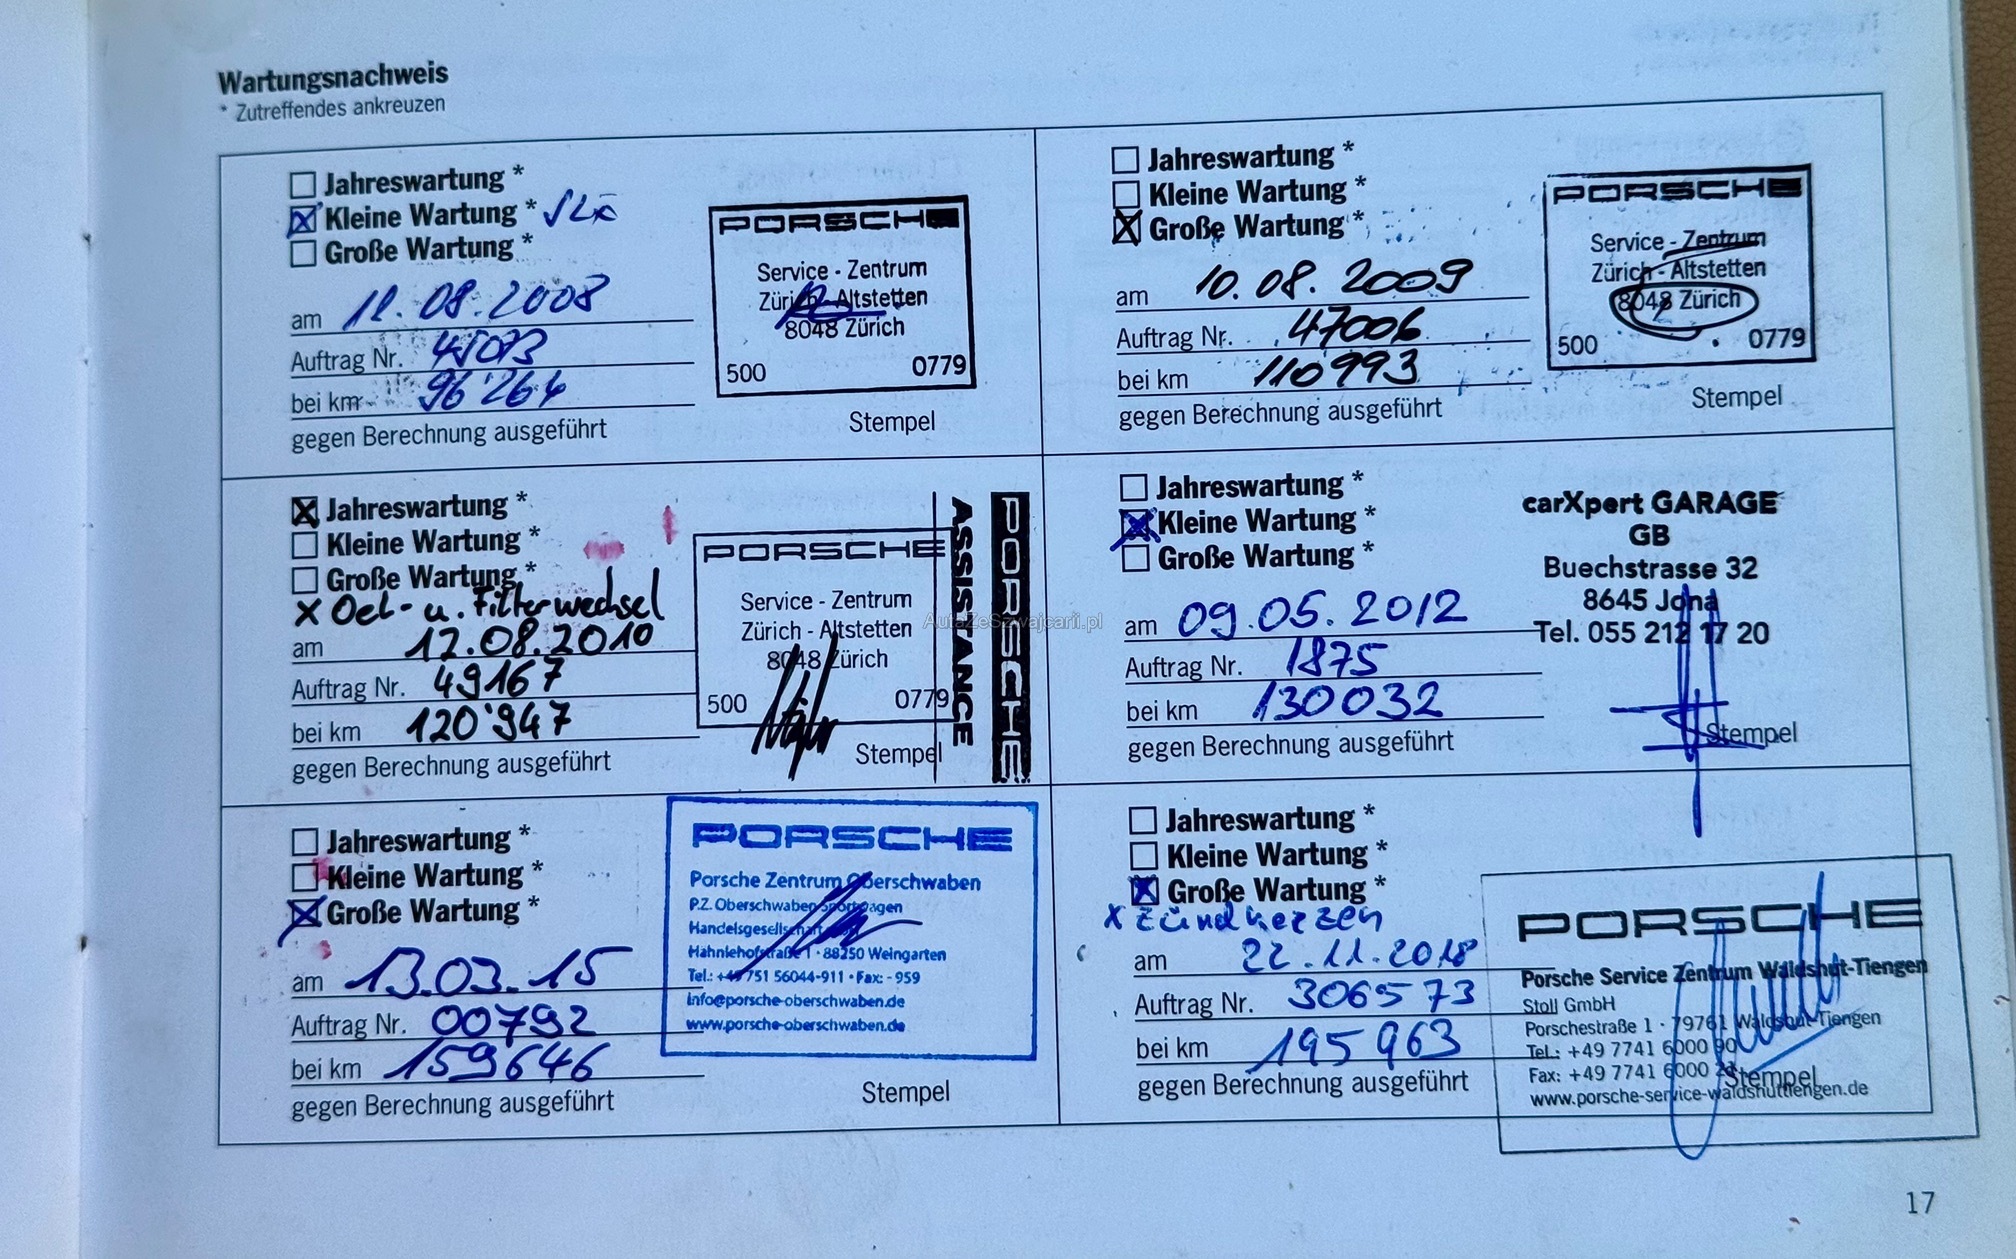 Wartungsnachweis
* Zutreffendes ankreuzen
Jahreswartung *
Kleine Wartung *
Große Wartung *
am 11.08.2008
Auftrag Nr. 45073
bei km 96'264
gegen Berechnung ausgeführt
PORSCHE
Service - Zentrum
Zürich - Altstetten
8048 Zürich
500 0779
Stempel
Jahreswartung *
Kleine Wartung *
Große Wartung *
am 10.08.2009
Auftrag Nr. 47006
bei km 110993
gegen Berechnung ausgeführt
PORSCHE
Service - Zentrum
Zürich - Altstetten
8048 Zürich
500 0779
Stempel
Jahreswartung *
Kleine Wartung *
Große Wartung *
x Oel- u. Filterwechsel
am 12.08.2010
Auftrag Nr. 49167
bei km 120'947
gegen Berechnung ausgeführt
PORSCHE
Service - Zentrum
Zürich - Altstetten
8048 Zürich
500 0779
Stempel
PORSCHE
ASSISTANCE
AutaZeSzwajcarii.pl
Jahreswartung *
Kleine Wartung *
Große Wartung *
am 09.05.2012
Auftrag Nr. 1875
bei km 130032
gegen Berechnung ausgeführt
carXpert GARAGE
GB
Buechstrasse 32
8645 Jona
Tel. 055 212 17 20
Stempel
Jahreswartung *
Kleine Wartung *
Große Wartung *
am 13.03.15
Auftrag Nr. 00792
bei km 159646
gegen Berechnung ausgeführt
PORSCHE
Porsche Zentrum Oberschwaben
P.Z. Oberschwaben Sportwagen
Handelsgesellschaft
Hähnlehofstraße 1 · 88250 Weingarten
Tel.: +49 751 56044-911 • Fax: - 959
info@porsche-oberschwaben.de
www.porsche-oberschwaben.de
Stempel
Jahreswartung *
Kleine Wartung *
Große Wartung *
x Zündkerzen
am 22.11.2018
Auftrag Nr. 306573
bei km 195963
gegen Berechnung ausgeführt
PORSCHE
Porsche Service Zentrum Waldshut-Tiengen
Stoll GmbH
Porschestraße 1 · 79761 Waldshut-Tiengen
Tel.: +49 7741 6000 90
Fax: +49 7741 6000
www.porsche-service-waldshuttiengen.de
Stempel
17